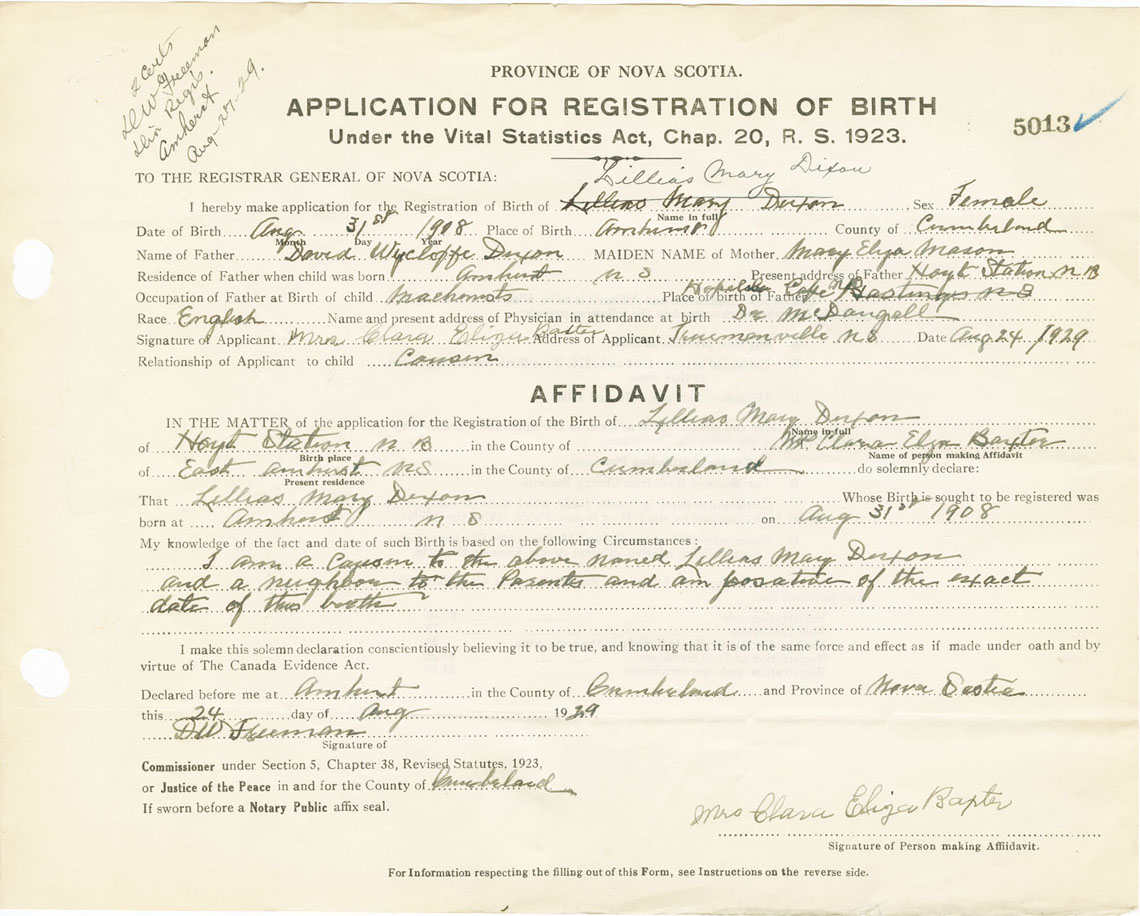 2 Certs
D W Freeman
Div Regis.
Amherst
Aug-27-29.
PROVINCE OF NOVA SCOTIA.
APPLICATION FOR REGISTRATION OF BIRTH
Under the Vital Statistics Act, Chap. 20, R. S. 1923.
5013
TO THE REGISTRAR GENERAL OF NOVA SCOTIA:
Lillias Mary Dixon
I hereby make application for the Registration of Birth of Lillias Mary Dixon Sex Female
Name in full
Date of Birth Aug 31st 1908 Place of Birth Amherst County of Cumberland
Month Day Year
Name of Father David Wycloffe Dixon MAIDEN NAME of Mother Mary Eliza Mason
Residence of Father when child was born Amherst N S Present address of Father Hoyt Station N B
Occupation of Father at Birth of child Machonists Place of birth of Father Hopewell Cape N B Hastings N S
Race English Name and present address of Physician in attendance at birth Dr McDougall
Signature of Applicant Mrs Clara Eliza Baxter Address of Applicant Truemanville N S Date Aug 24 1929
Relationship of Applicant to child Couson
AFFIDAVIT
IN THE MATTER of the application for the Registration of the Birth of Lillias Mary Dixon
Name in full
of Hoyt Station N B in the County of Mrs Clara Eliza Baxter
Birth place Name of person making Affidavit
of East Amherst N S in the County of Cumberland do solemnly declare:
Present residence
That Lillias Mary Dixon Whose Birth is sought to be registered was
born at Amherst N S on Aug 31st 1908
My knowledge of the fact and date of such Birth is based on the following Circumstances:
I am a Couson to the above named Lillias Mary Dixon
and a neighbour to the Parents and am posative of the exact
date of this birth
I make this solemn declaration conscientiously believing it to be true, and knowing that it is of the same force and effect as if made under oath and by
virtue of The Canada Evidence Act.
Declared before me at Amherst in the County of Cumberland and Province of Nova Scotia
this 24 day of Aug 1929
D W Freeman
Signature of
Commissioner under Section 5, Chapter 38, Revised Statutes, 1923,
or Justice of the Peace in and for the County of Cumberland
If sworn before a Notary Public affix seal.
Mrs Clara Eliza Baxter
Signature of Person making Affidavit.
For Information respecting the filling out of this Form, see Instructions on the reverse side.